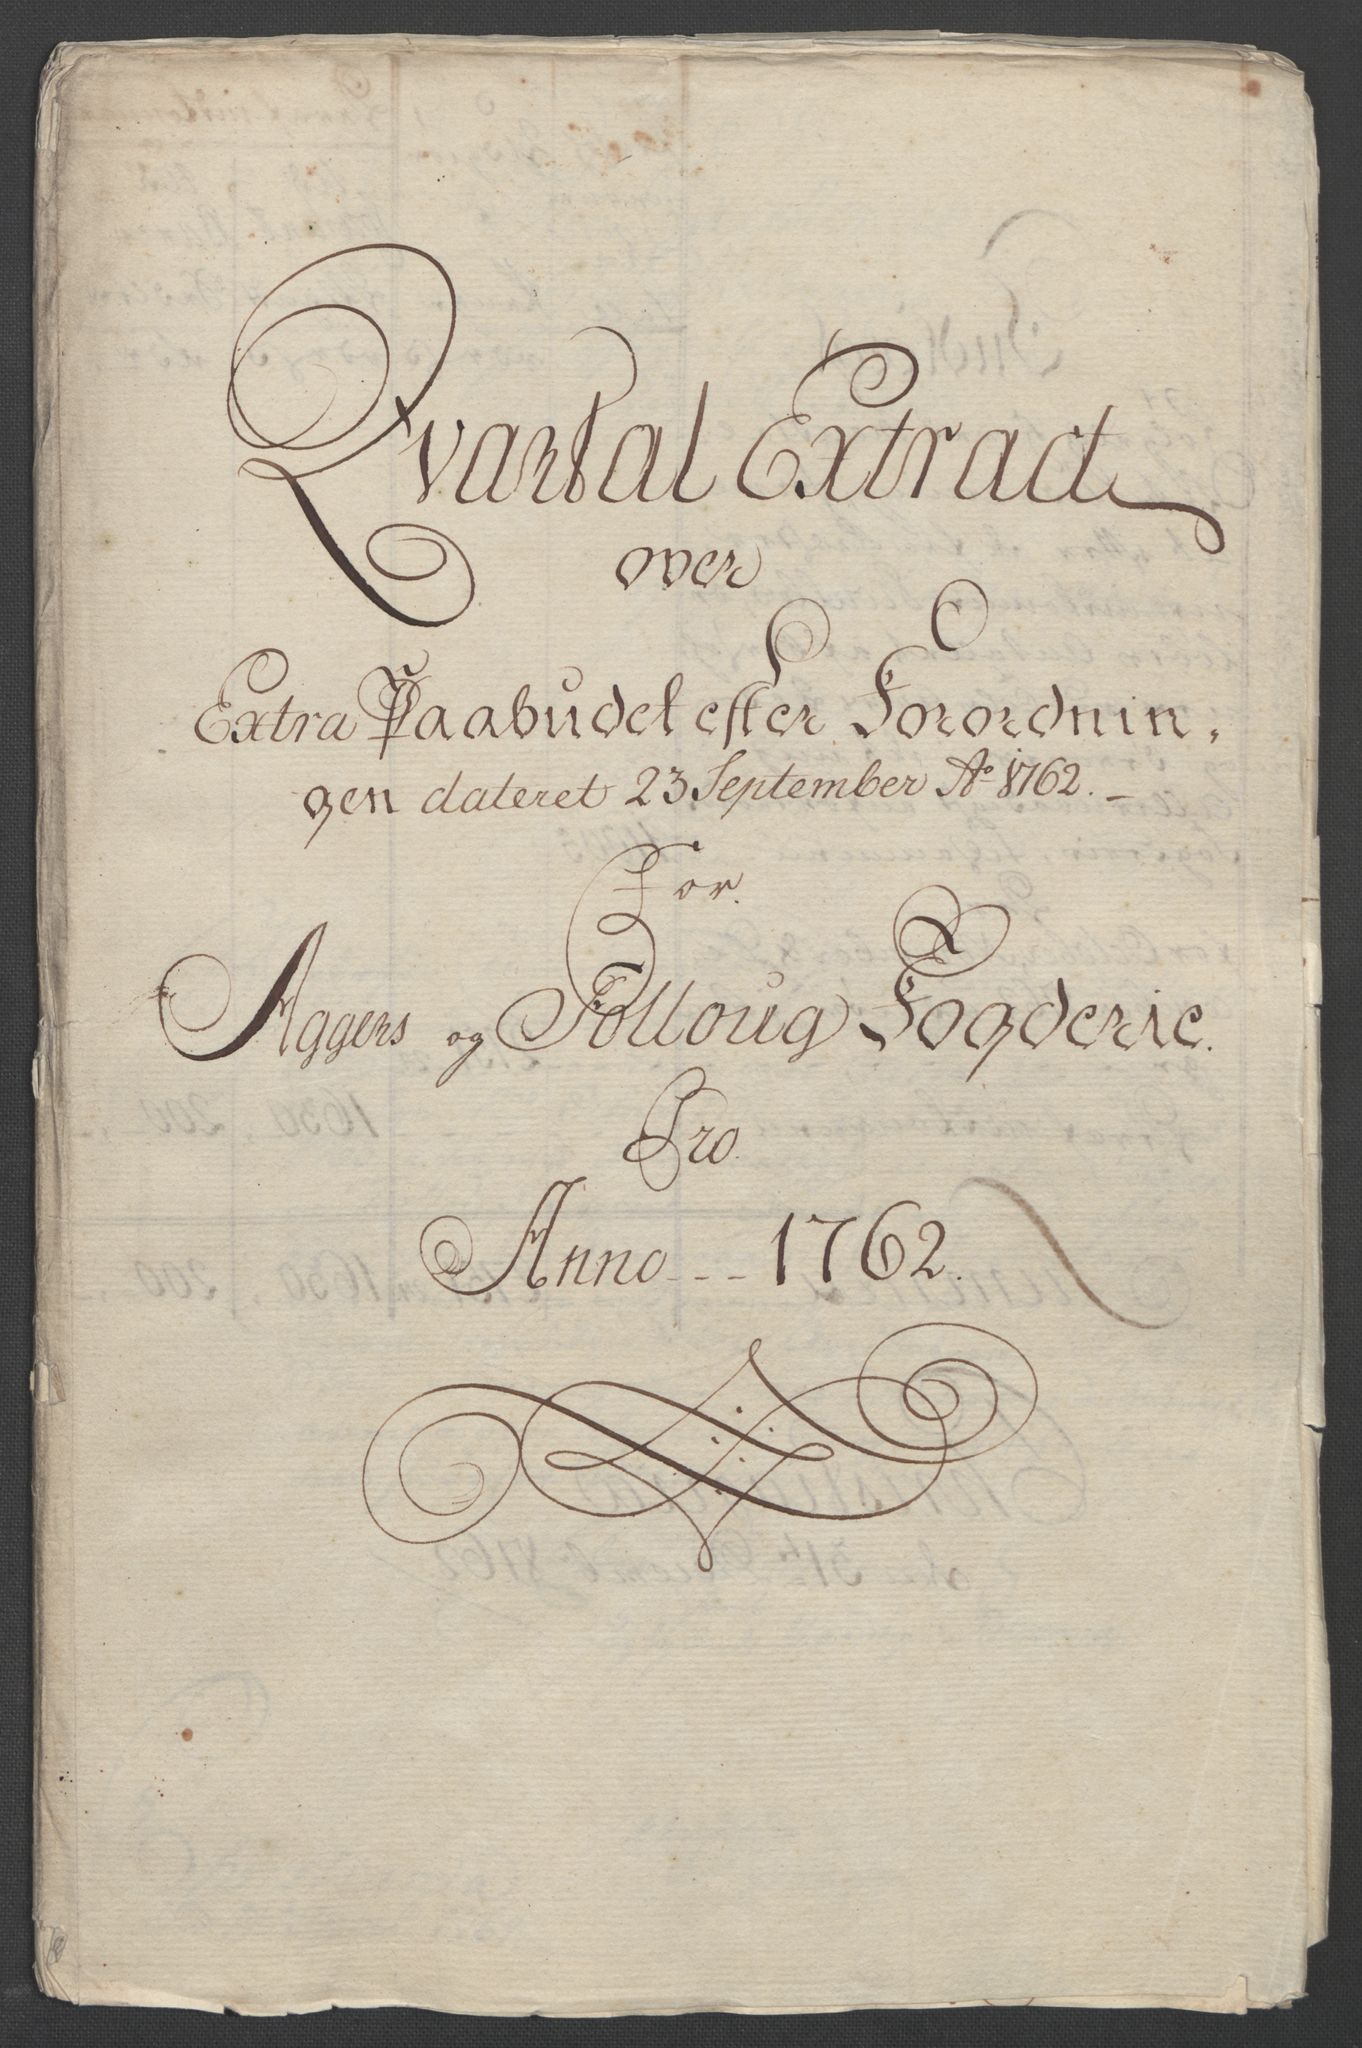 Qvartal Extract
over
Extra Paabudet efter Forordnin,
gen dateret 23 September Ao 1762.
For
Aggers og Folloug Fogderie.
Pro
Anno --- 1762.